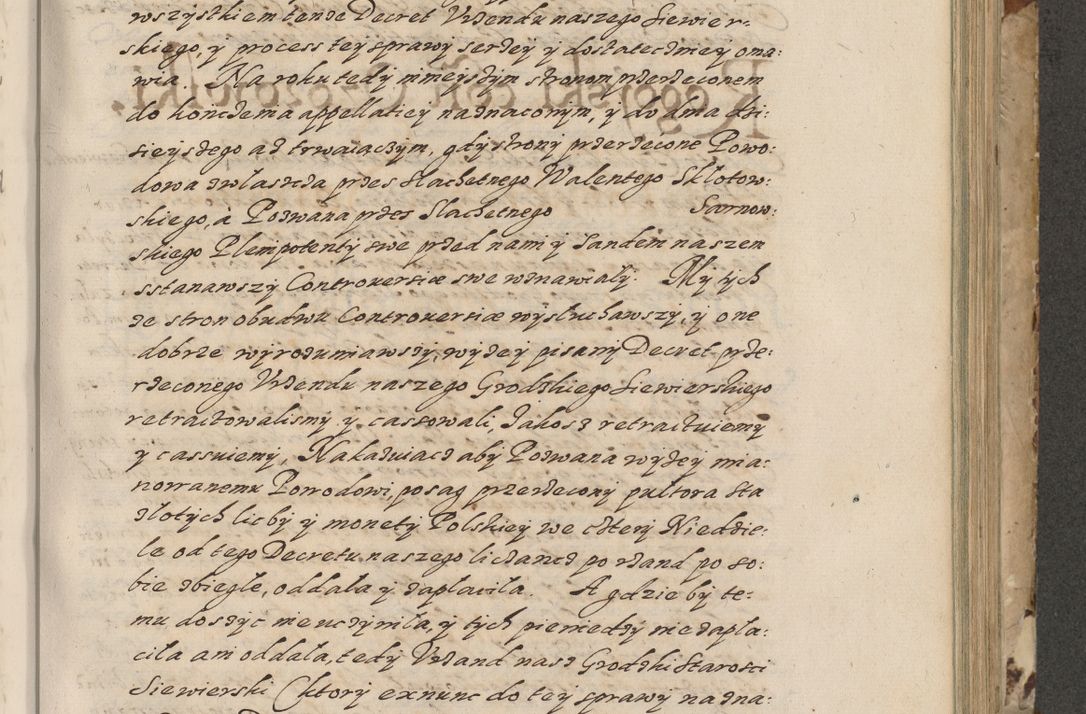 wszystkiem tende Decret Vrzendu naszego Siewier-
skiego, y process tey sprawy serzey y dostatecżniey oma:
wia. Na roku tedy ninieyszym stronom przerzeconem
do konczenia appellatiey naznaczonym, y do dnia dzi:
sieyszego ad trwaiaczym, gdy strony przerzecone Powo:
dowa zwlaszcza przes Slachetnego Walentego Sklotow:
skiego, a Pozwana przes Slachetnego Sarnow:
skiego Plempotenty swe przed nami y Sandem naszem
sstanawszy Controuersiæ swe wznawiały. My tych
ze stron obudwu Controuersiæ wysluchawszy, y one
dobrze wyrozumiawszy, wyzey pisany Decret prze:
rzeconego Vrzendu naszego Grodzkiego Siewierskiego
retractowalismy y cassowali, Jakosz retractuiemy
y cassuiemy, Nakazuiacz aby Pozwana wyzey mia:
nowanemu Powodowi, posag przerzecony pultora sta
złotych liczby y monety Polskiey we cztery Niedzie:
le od tego Decretu naszego liczancz po rzand po so:
bie zbiegle, oddala y zaplacila. A gdzie by te:
mu doszyc nie uczynila, y tych pieniedzy nie zapla:
cila ani oddala, tedy Vrzand nasz Grodzki Starosti
Siewierski Ktory exnunc do tey sprawy nazna: